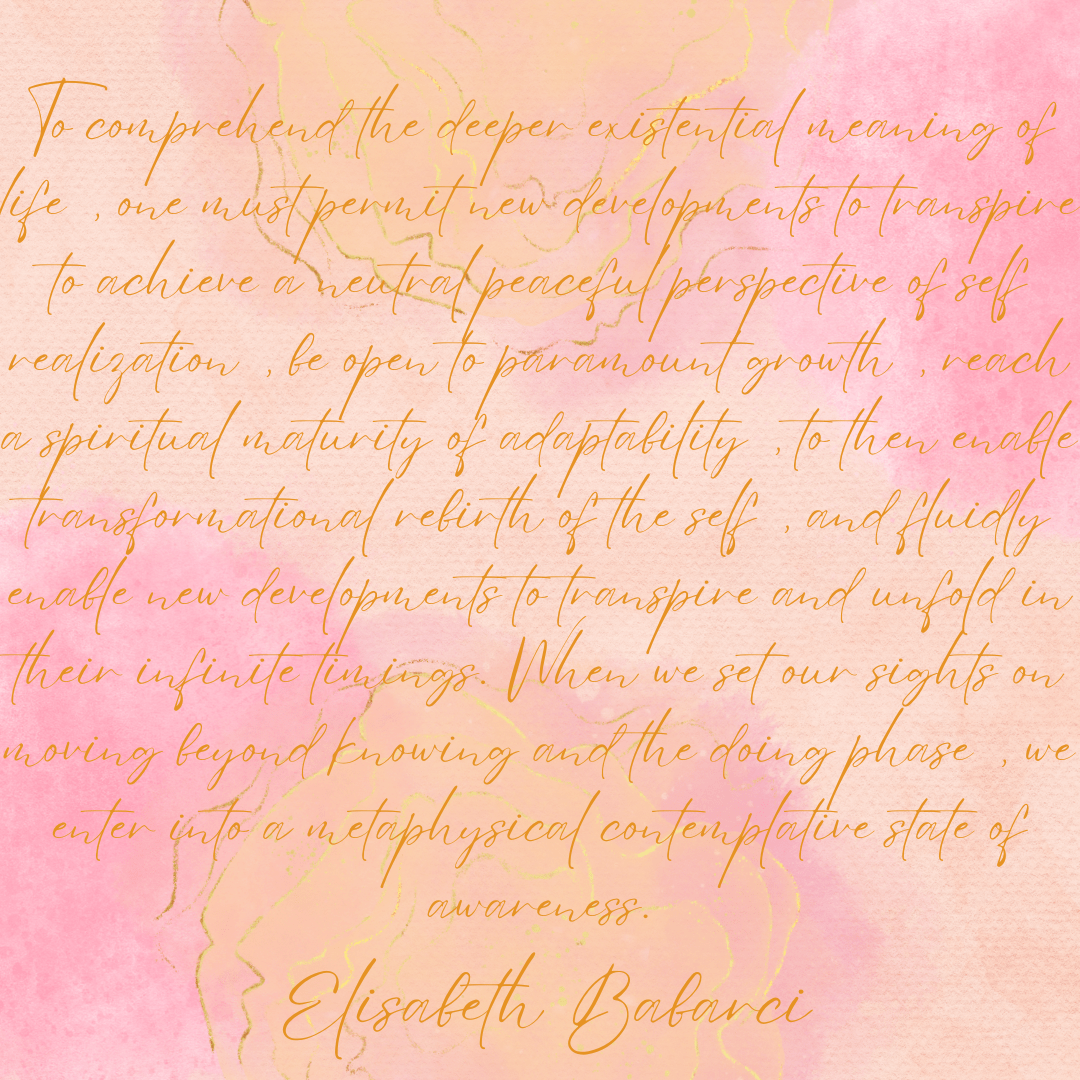 To comprehend the deeper existential meaning of
life , one must permit new developments to transpire
to achieve a neutral peaceful perspective of self
realization , be open to paramount growth , reach
a spiritual maturity of adaptability , to then enable
transformational rebirth of the self , and fluidly
enable new developments to transpire and unfold in
their infinite timings. When we set our sights on
moving beyond knowing and the doing phase , we
enter into a metaphysical contemplative state of
awareness.
Elisabeth Babarci